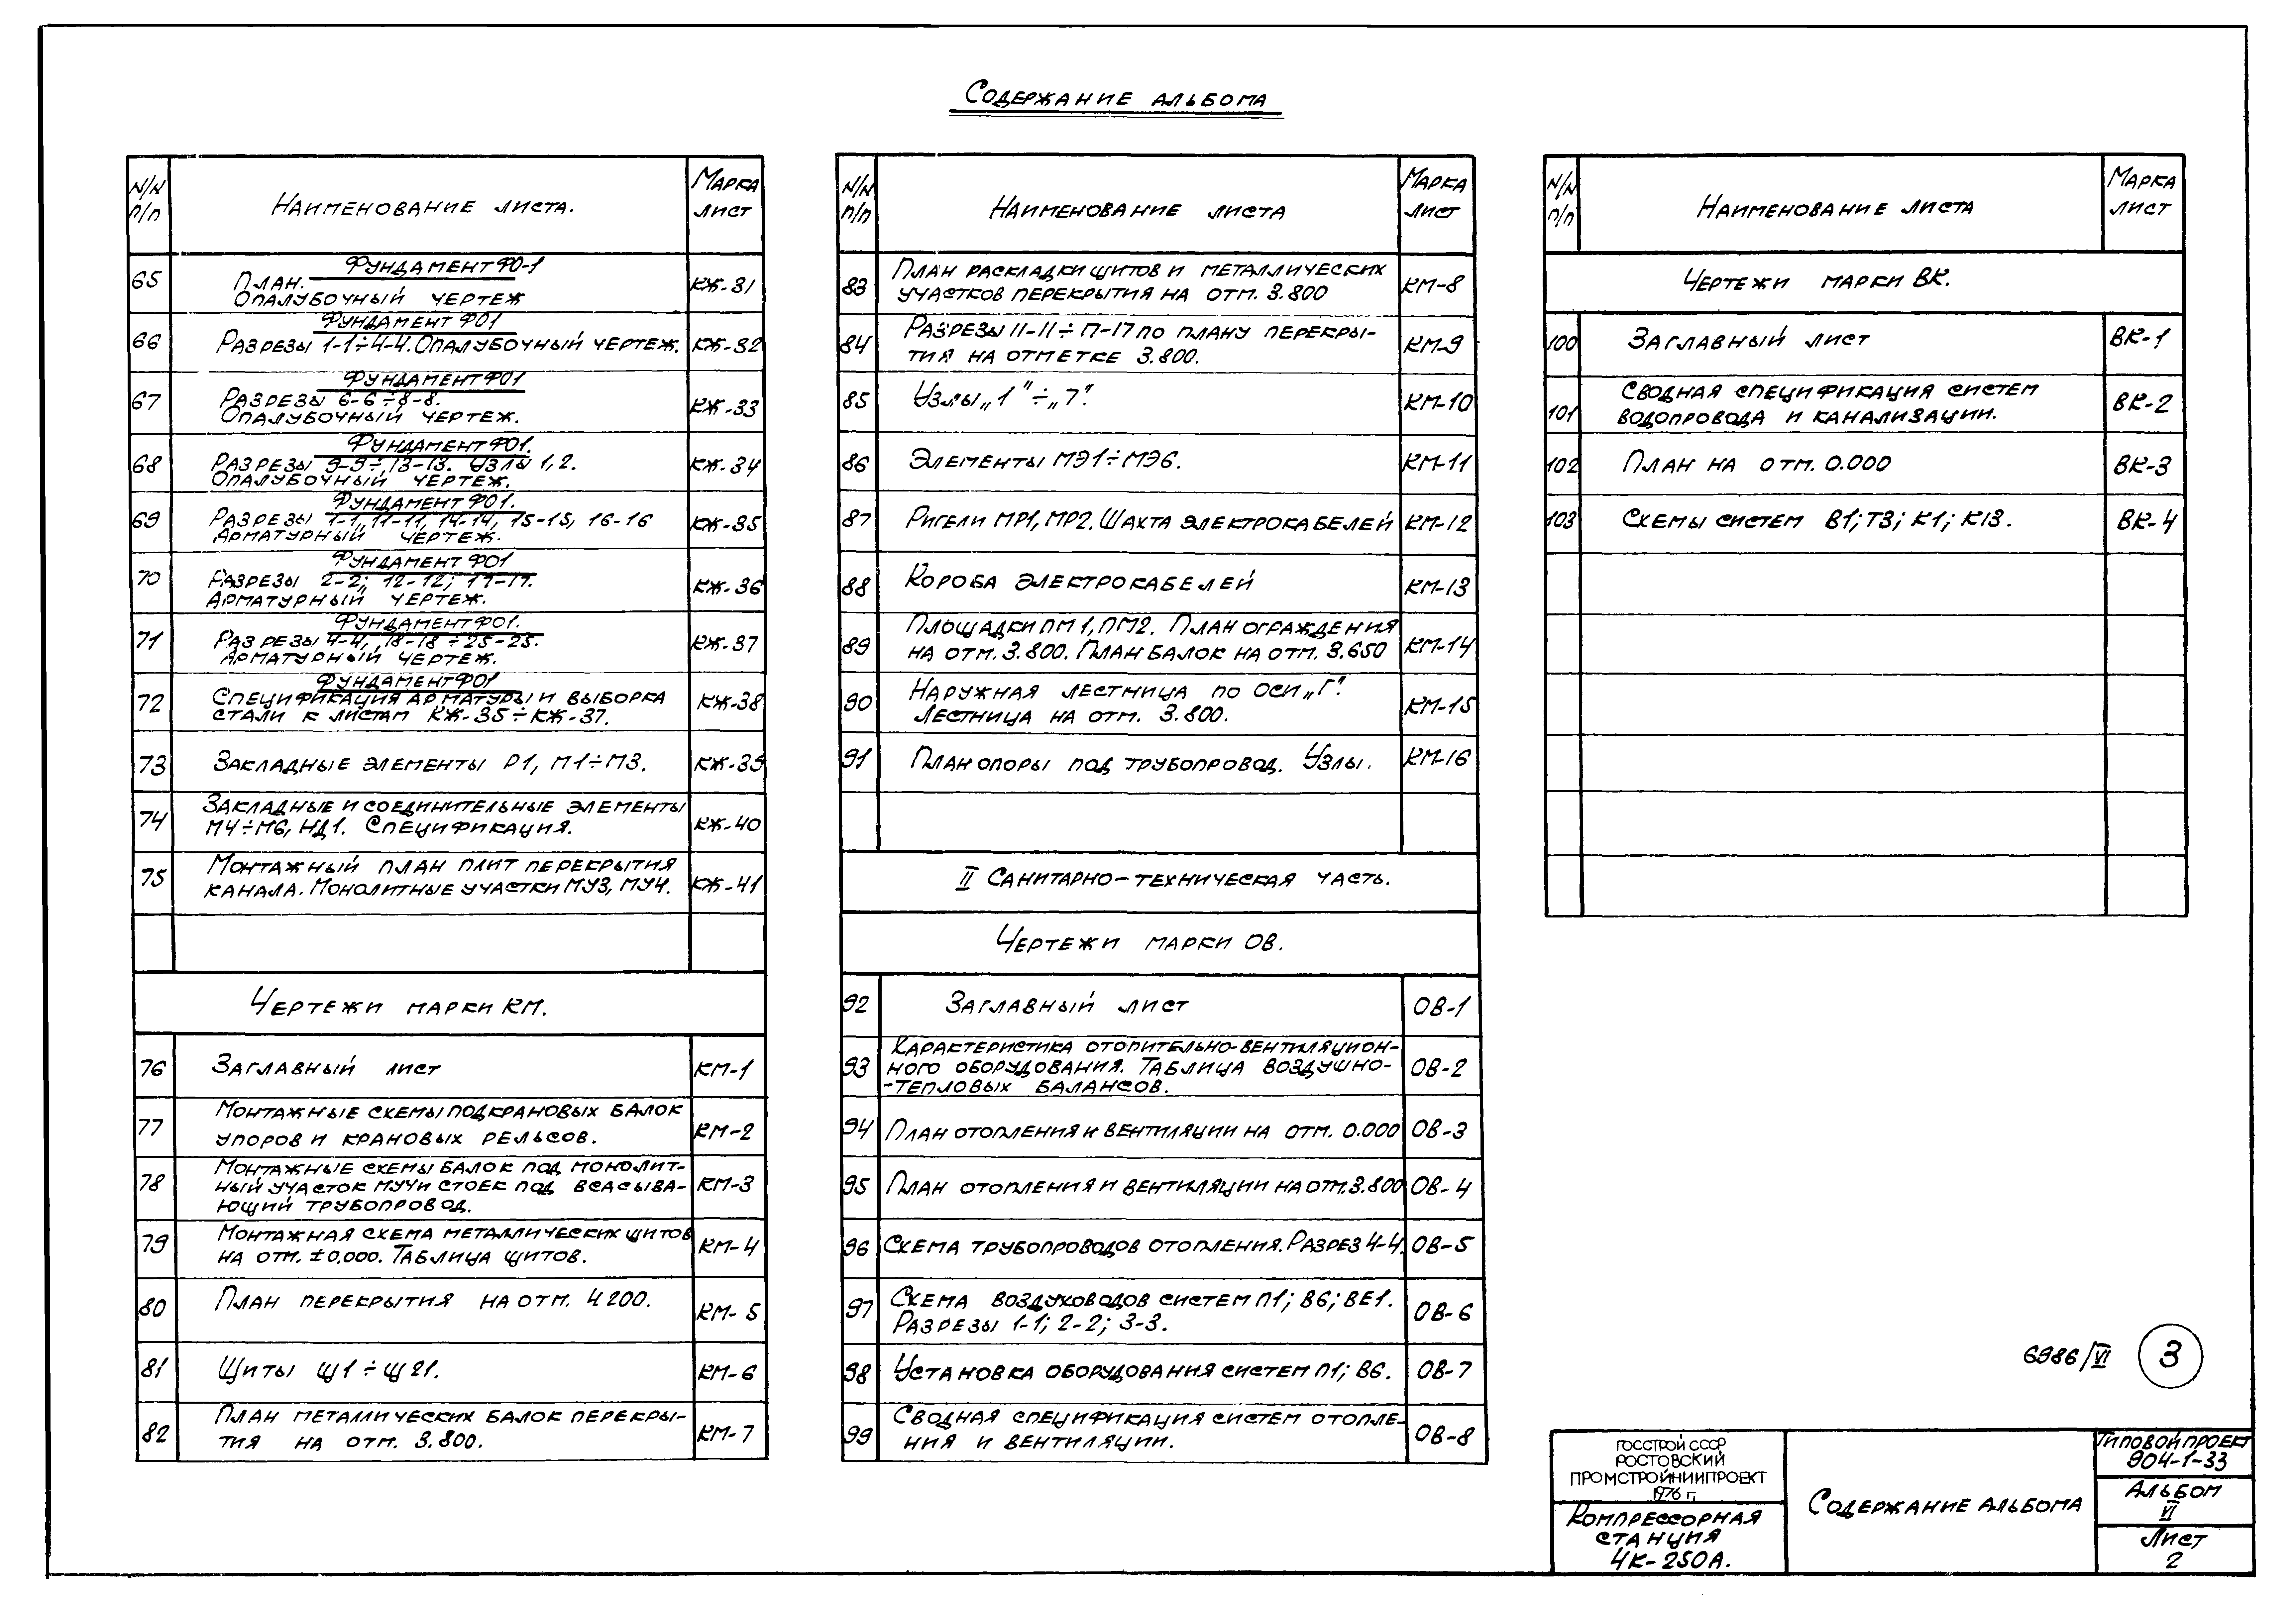 Содержание альбома
N/N п/п Наименование листа. Марка лист
65 Фундамент ФО-1
План.
Опалубочный чертеж КЖ-31
66 Фундамент ФО1
Разрезы 1-1÷4-4. Опалубочный чертеж. КЖ-32
67 Фундамент ФО1
Разрезы 6-6÷8-8.
Опалубочный чертеж. КЖ-33
68 Фундамент ФО1.
Разрезы 9-9÷13-13. Узлы 1,2.
Опалубочный чертеж. КЖ-34
69 Фундамент ФО1.
Разрезы 1-1, 11-11, 14-14, 15-15, 16-16
Арматурный чертеж. КЖ-35
70 Фундамент ФО1
Разрезы 2-2; 12-12; 17-17.
Арматурный чертеж. КЖ-36
71 Фундамент ФО1.
Разрезы 4-4, 18-18÷25-25.
Арматурный чертеж. КЖ-37
72 Фундамент ФО1
Спецификация арматуры и выборка
стали к листам КЖ-35÷КЖ-37. КЖ-38
73 Закладные элементы Р1, М1÷М3. КЖ-39
74 Закладные и соединительные элементы
М4÷М6, НД1. Спецификация. КЖ-40
75 Монтажный план плит перекрытия
канала. Монолитные участки МУ3, МУ4. КЖ-41
Чертежи марки КМ.
76 Заглавный лист КМ-1
77 Монтажные схемы подкрановых балок
упоров и крановых рельсов. КМ-2
78 Монтажные схемы балок под монолит-
ный участок МУ4и стоек под всасыва-
ющий трубопровод. КМ-3
79 Монтажная схема металлических щитов
на отм. ±0.000. Таблица щитов. КМ-4
80 План перекрытия на отм. 4.200. КМ-5
81 Щиты Щ1÷Щ21. КМ-6
82 План металлических балок перекры-
тия на отм. 3.800. КМ-7
N/N п/п Наименование листа Марка лист
83 План раскладки щитов и металлических
участков перекрытия на отм. 3.800 КМ-8
84 Разрезы 11-11÷17-17 по плану перекры-
тия на отметке 3.800. КМ-9
85 Узлы „1"÷„7". КМ-10
86 Элементы МЭ1÷МЭ6. КМ-11
87 Ригели МР1, МР2. Шахта электрокабелей КМ-12
88 Короба электрокабелей КМ-13
89 Площадки ПМ1, ПМ2. План ограждения
на отм. 3.800. План балок на отм. 3.650 КМ-14
90 Наружная лестница по оси „Г".
Лестница на отм. 3.800. КМ-15
91 План опоры под трубопровод. Узлы. КМ-16
II Санитарно-техническая часть.
Чертежи марки ОВ.
92 Заглавный лист ОВ-1
93 Характеристика отопительно-вентиляцион-
ного оборудования. Таблица воздушно-
-тепловых балансов. ОВ-2
94 План отопления и вентиляции на отм. 0.000 ОВ-3
95 План отопления и вентиляции на отм. 3.800 ОВ-4
96 Схема трубопроводов отопления. Разрез 4-4. ОВ-5
97 Схема воздуховодов систем П1; В6; ВЕ1.
Разрезы 1-1; 2-2; 3-3. ОВ-6
98 Установка оборудования систем П1; В6. ОВ-7
99 Сводная спецификация систем отопле-
ния и вентиляции. ОВ-8
N/N п/п Наименование листа Марка лист
Чертежи марки ВК.
100 Заглавный лист ВК-1
101 Сводная спецификация систем
водопровода и канализации. ВК-2
102 План на отм. 0.000 ВК-3
103 Схемы систем В1; Т3; К1; К13. ВК-4
6986/VI 3
ГОССТРОЙ СССР
РОСТОВСКИЙ
ПРОМСТРОЙНИИПРОЕКТ
1976 г.
Компрессорная
станция
4К-250А.
Содержание альбома
Типовой проект
904-1-33
Альбом
VI
Лист
2